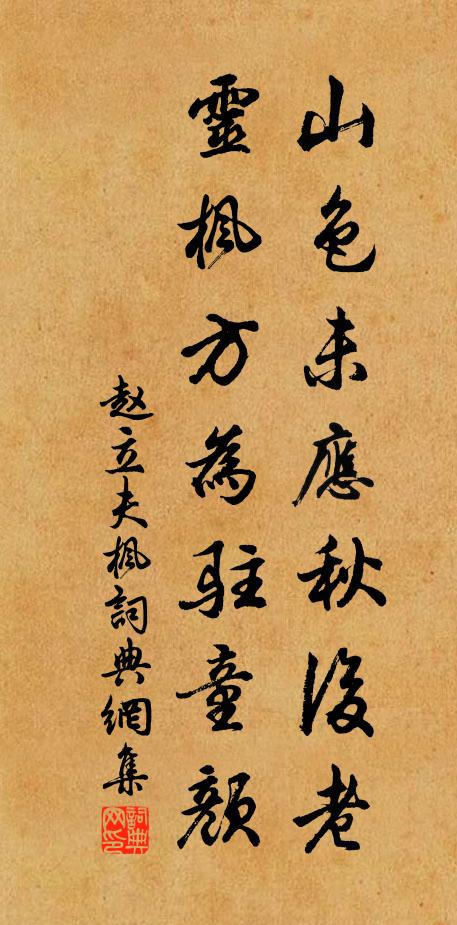 山色未應秋後老
靈楓方為駐童顏
赵立夫枫詞典網集
詞典网印